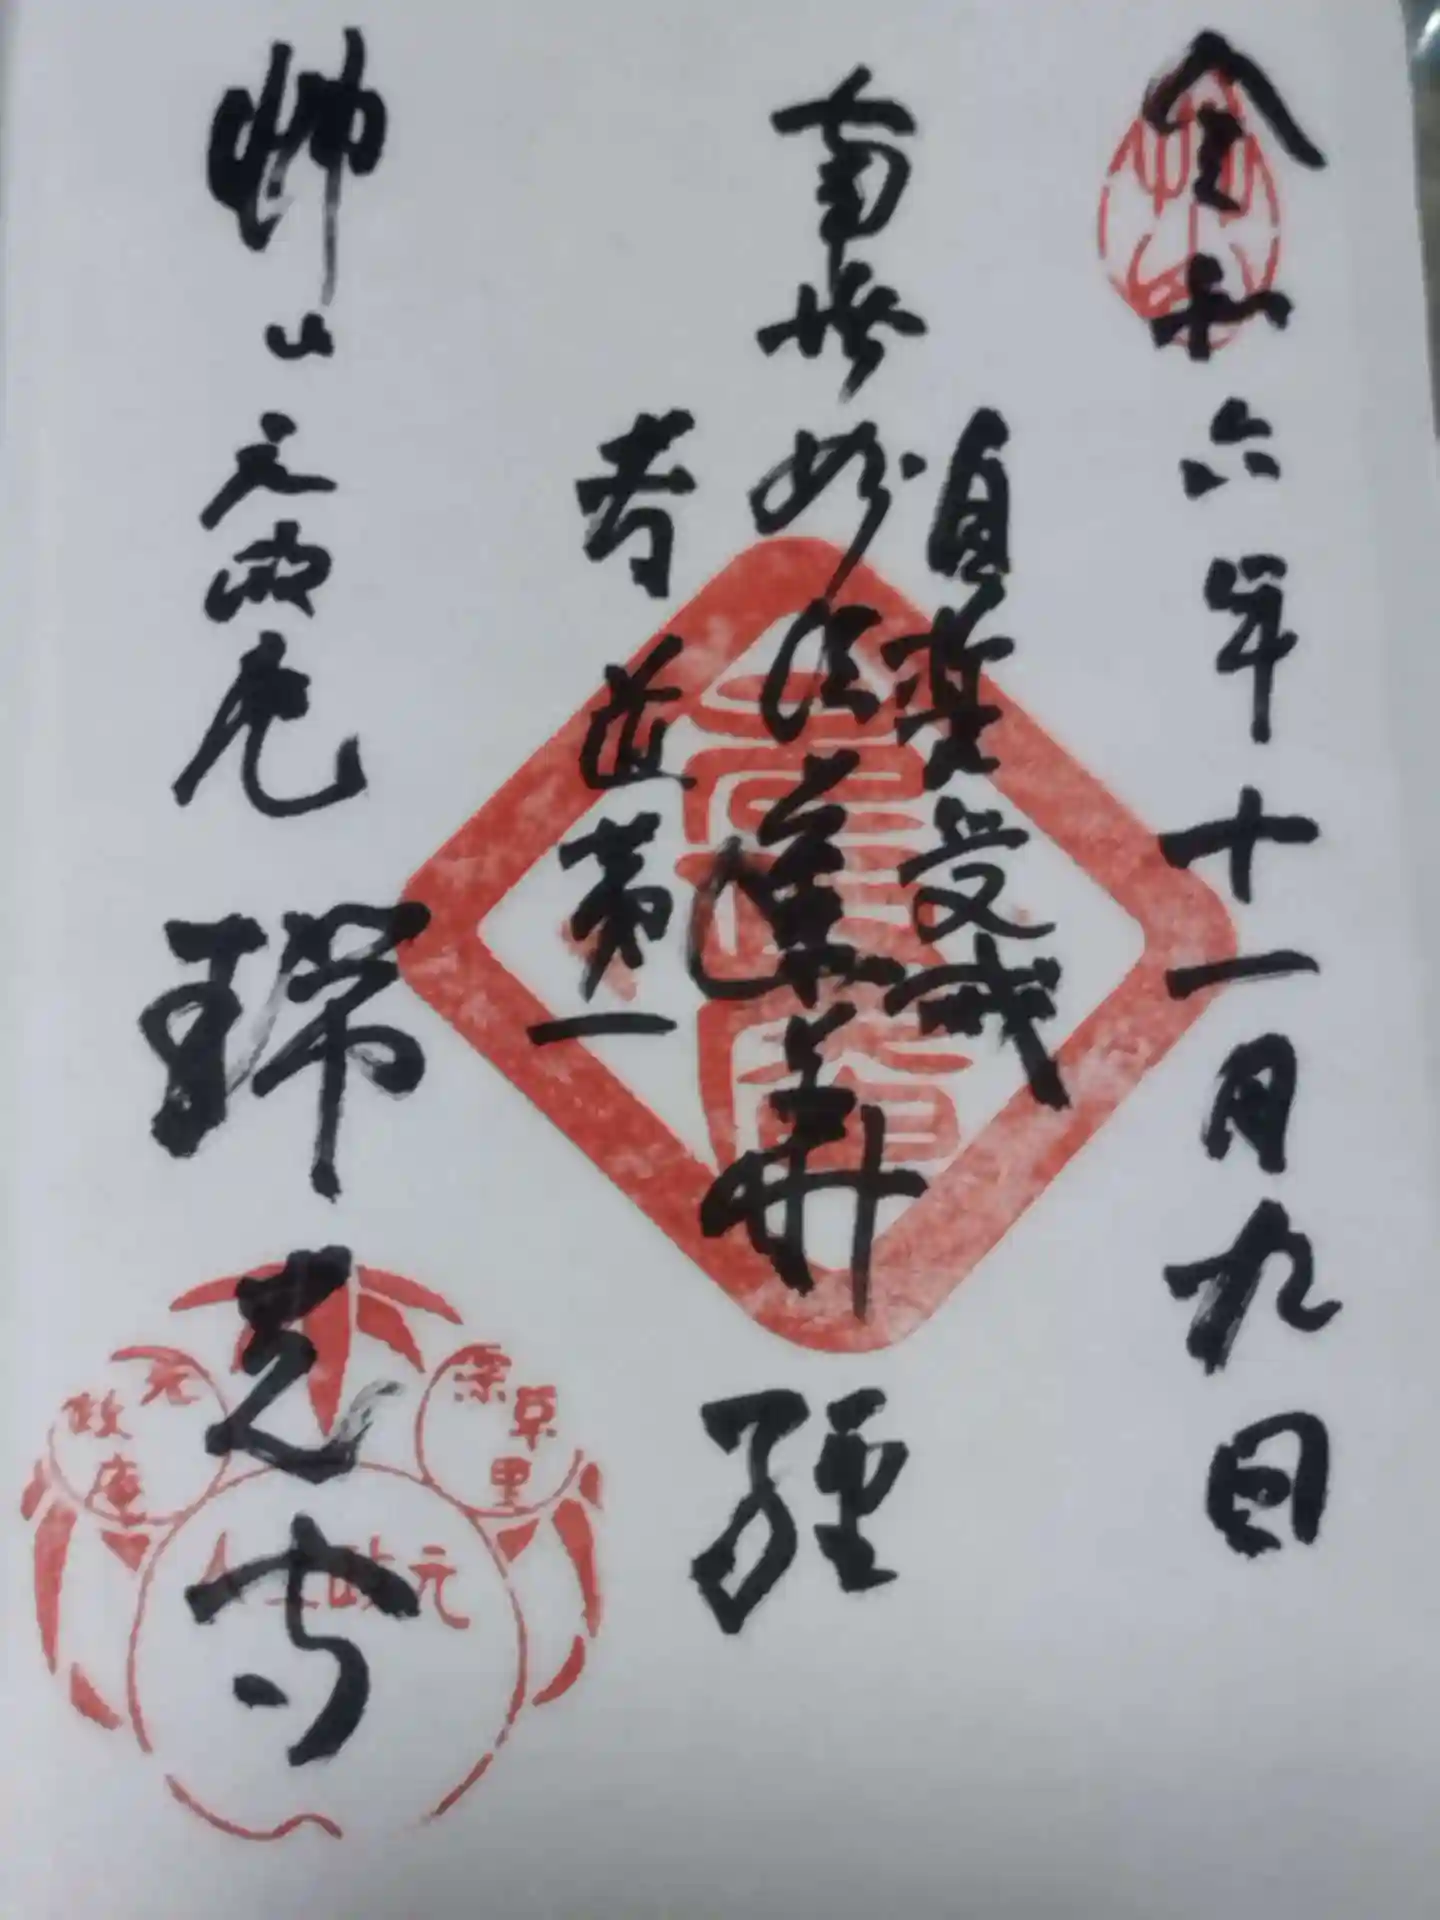 令和六年十一月九日
自誓受戒
南無妙法蓮華経
孝道第一
艸山元政庵
瑞光寺
艸山
深草里
元政庵
元政上人